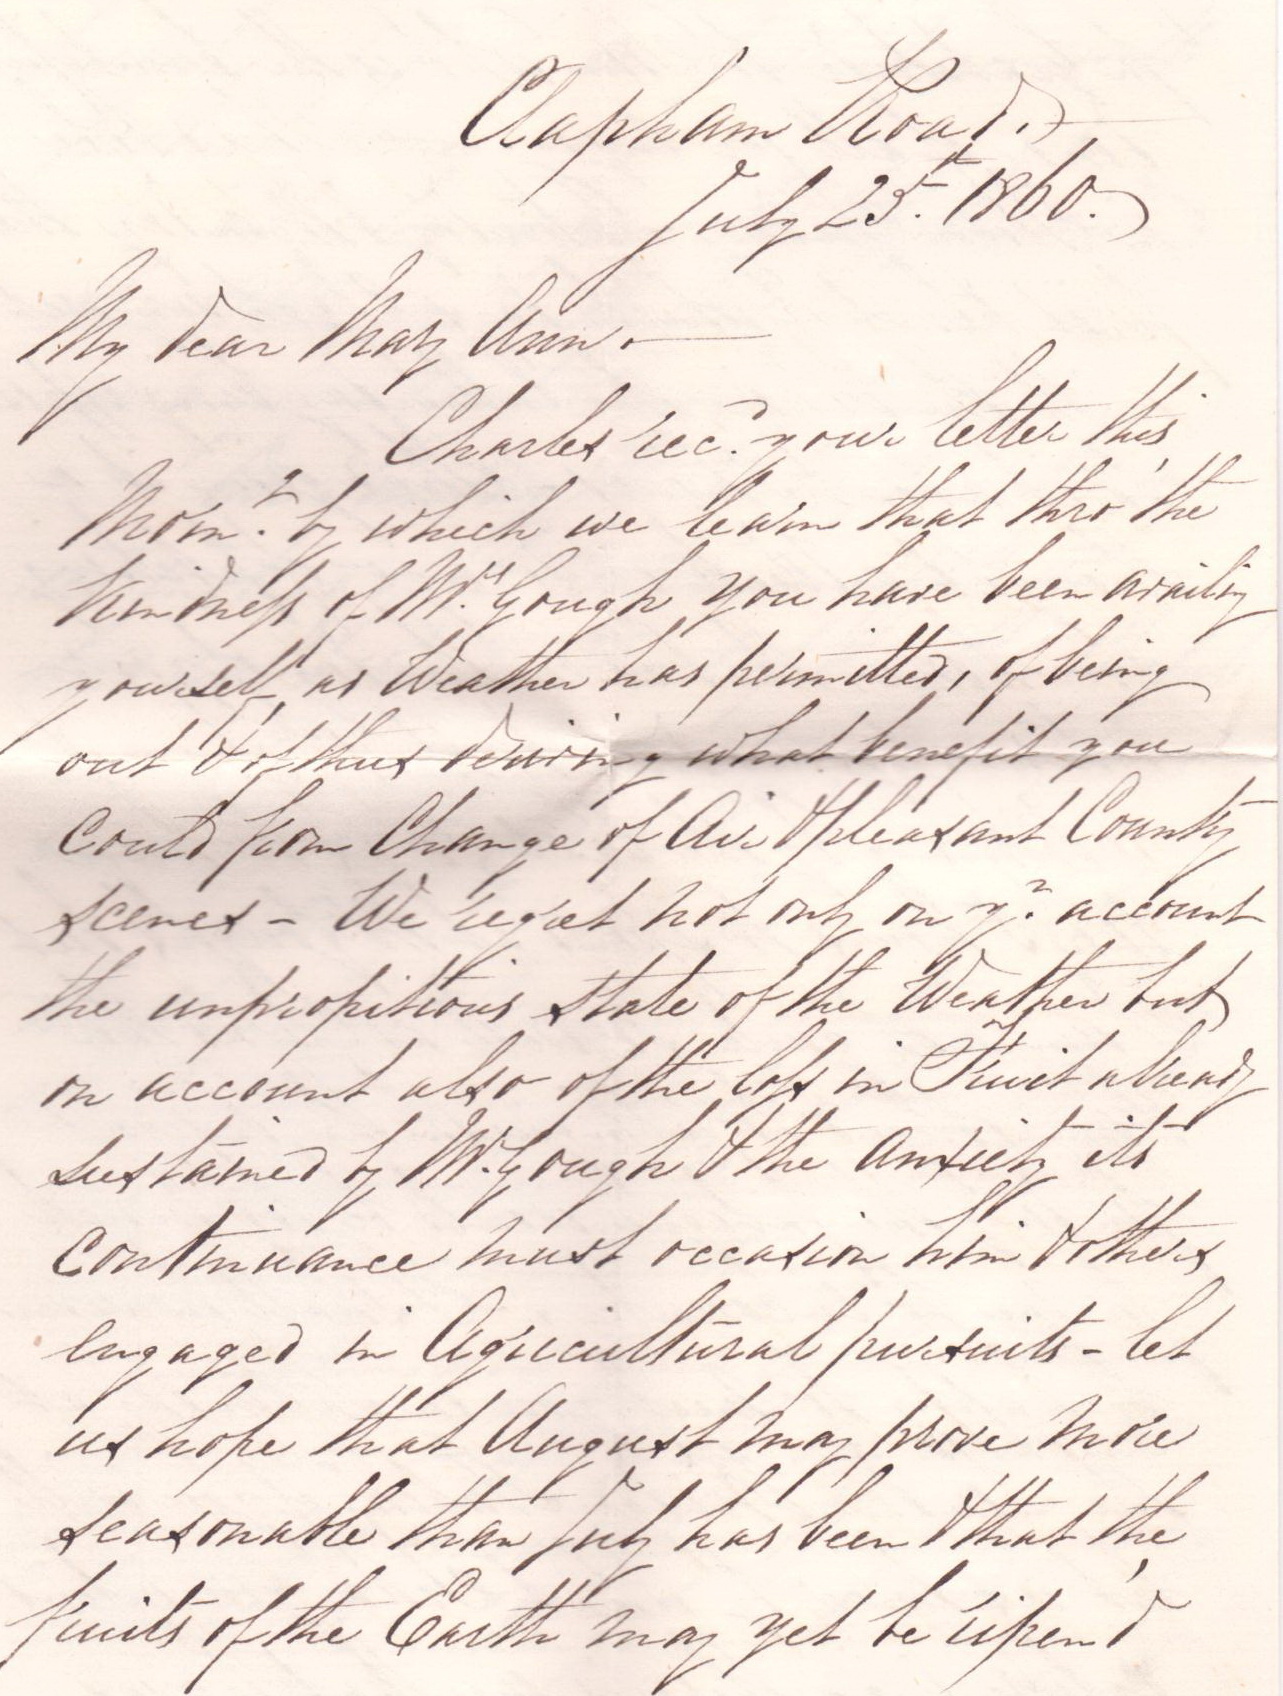 Clapham Road.
July 25th. 1860.
My dear Mary Ann.
Charles recd. your letter this
Morng. by which we learn that thro' the
kindness of Mrs. Gough you have been availing
yourself, as Weather has permitted, of being
out & of thus deriving what benefit you
could from Change of Air & pleasant Country
scenes - We regret not only on yr. account
the unpropitious state of the Weather but
on account also of the loss in Fruit already
sustained by Mr. Gough & the anxiety its
continuance must occasion him & others
engaged in Agricultural pursuits - let
us hope that August may prove more
seasonable than July has been & that the
fruits of the Earth may yet be ripen'd